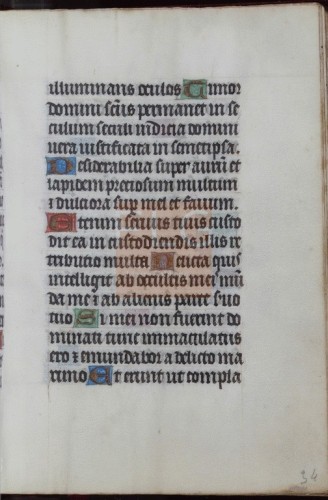 illuminans oculos Timor
domini scus permanet in se
culum seculi iudicia domini
uera iustificata in semetipsa.
Desiderabilia super aurū et
lapidem preciosum multum
⁊ dulciora sup mel et fauum.
Etenim seruus tuus custo
dit ea in custodiendis illis re
tributio multa Delicta quis
intelligit ab occultis meis mū
da me ⁊ ab alienis parce suo
tuo Si mei non fuerint do
minati tunc immaculatus
ero ⁊ emundabor a delicto ma
ximo Et erunt ut compla
34